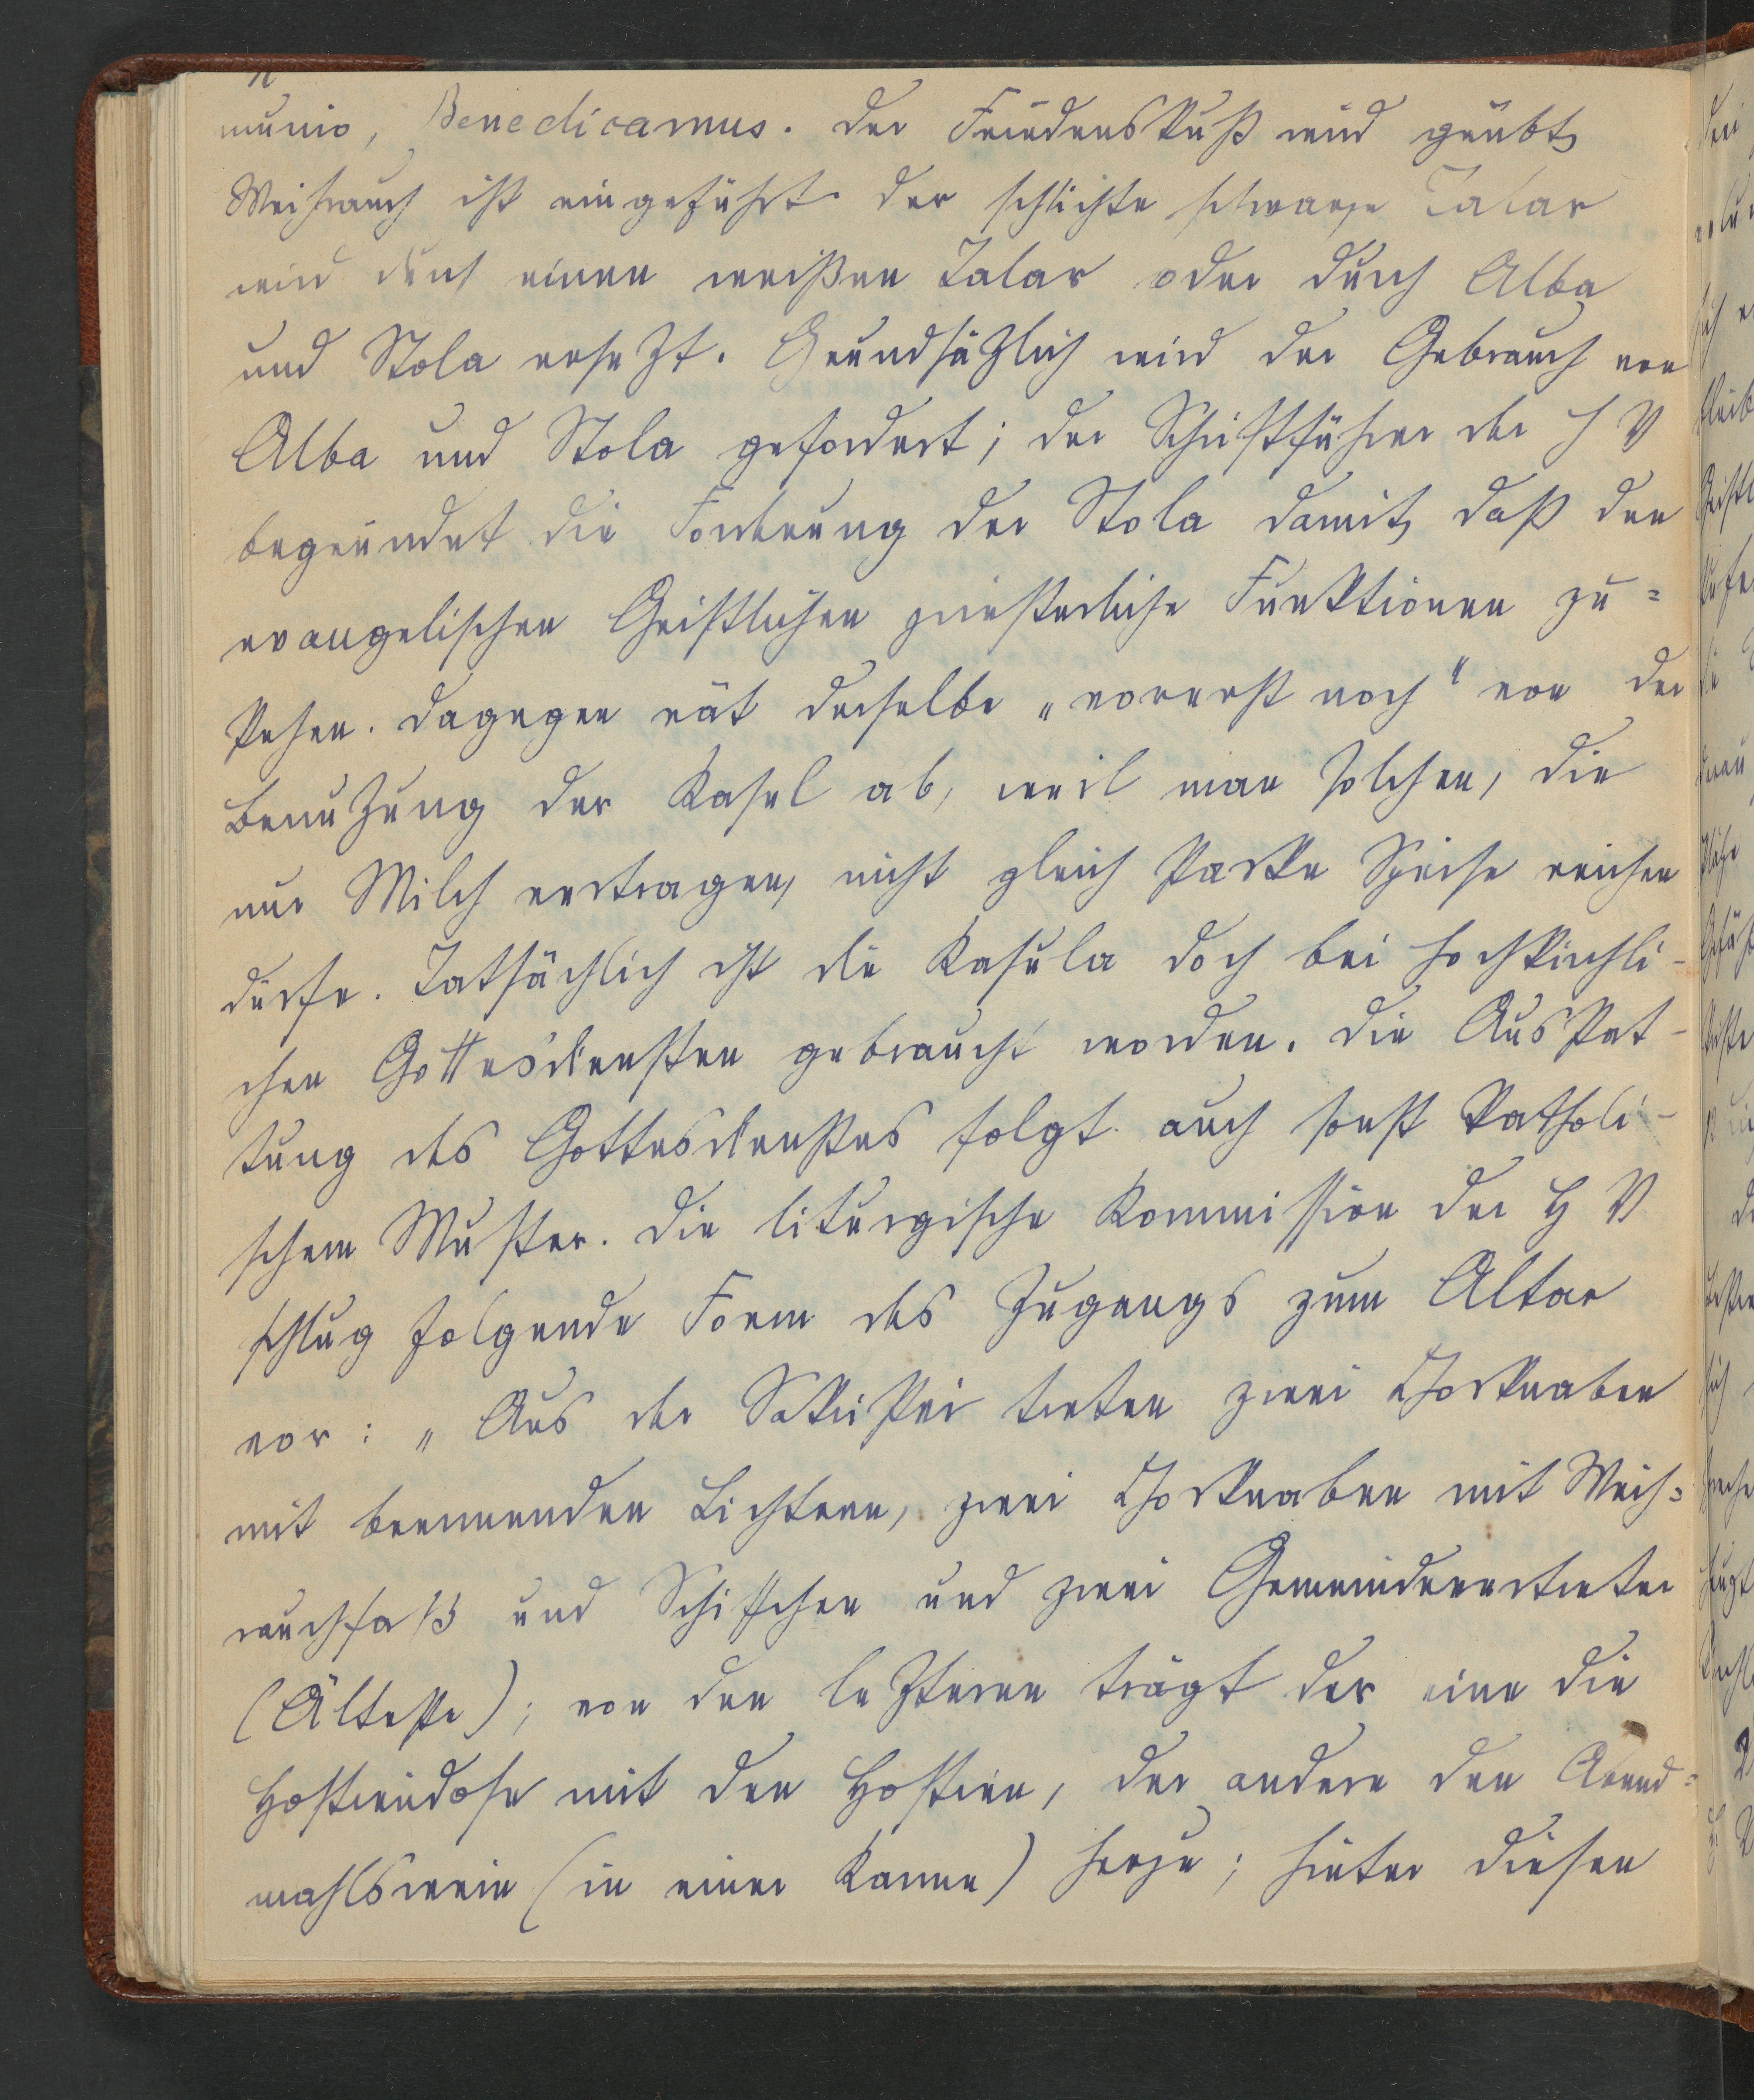 munio, Benedicamus. Der Friedenskuß wird geübt,
Weihrauch ist eingeführt. Der schlichte schwarze Talar
wird durch einen weißen Talar oder durch Alba
und Stola ersetzt. Grundsätzlich wird der Gebrauch von
Alba und Stola gefordert; der Schriftführer der H V
begründet die Forderung der Stola damit, daß den
evangelischen Geistlichen priesterliche Funktionen zu=
stehen. Dagegen rät derselbe „vorerst noch" von der
Benutzung der Kasel ab, weil man solchen, die
nur Milch vertragen, nicht gleich starke Speise reichen
dürfe. Tatsächlich ist die Kasula doch bei hochkirchli-
chen Gottesdiensten gebraucht worden. Die Ausstat-
tung des Gottesdienstes folgt auch sonst katholi-
schem Muster. Die liturgische Kommission der H V
schlug folgende Form des Zugangs zum Altar
vor: „Aus der Sakristei treten zwei Chorknaben
mit brennenden Lichtern, zwei Chorknaben mit Weih=
rauchfaß und Schiffchen und zwei Gemeindevertreter
(Älteste); von den letzteren trägt der eine die
Hostiendose mit den Hostien, der andere den Abend=
mahlswein (in einer Kanne) herzu; hinter diesen